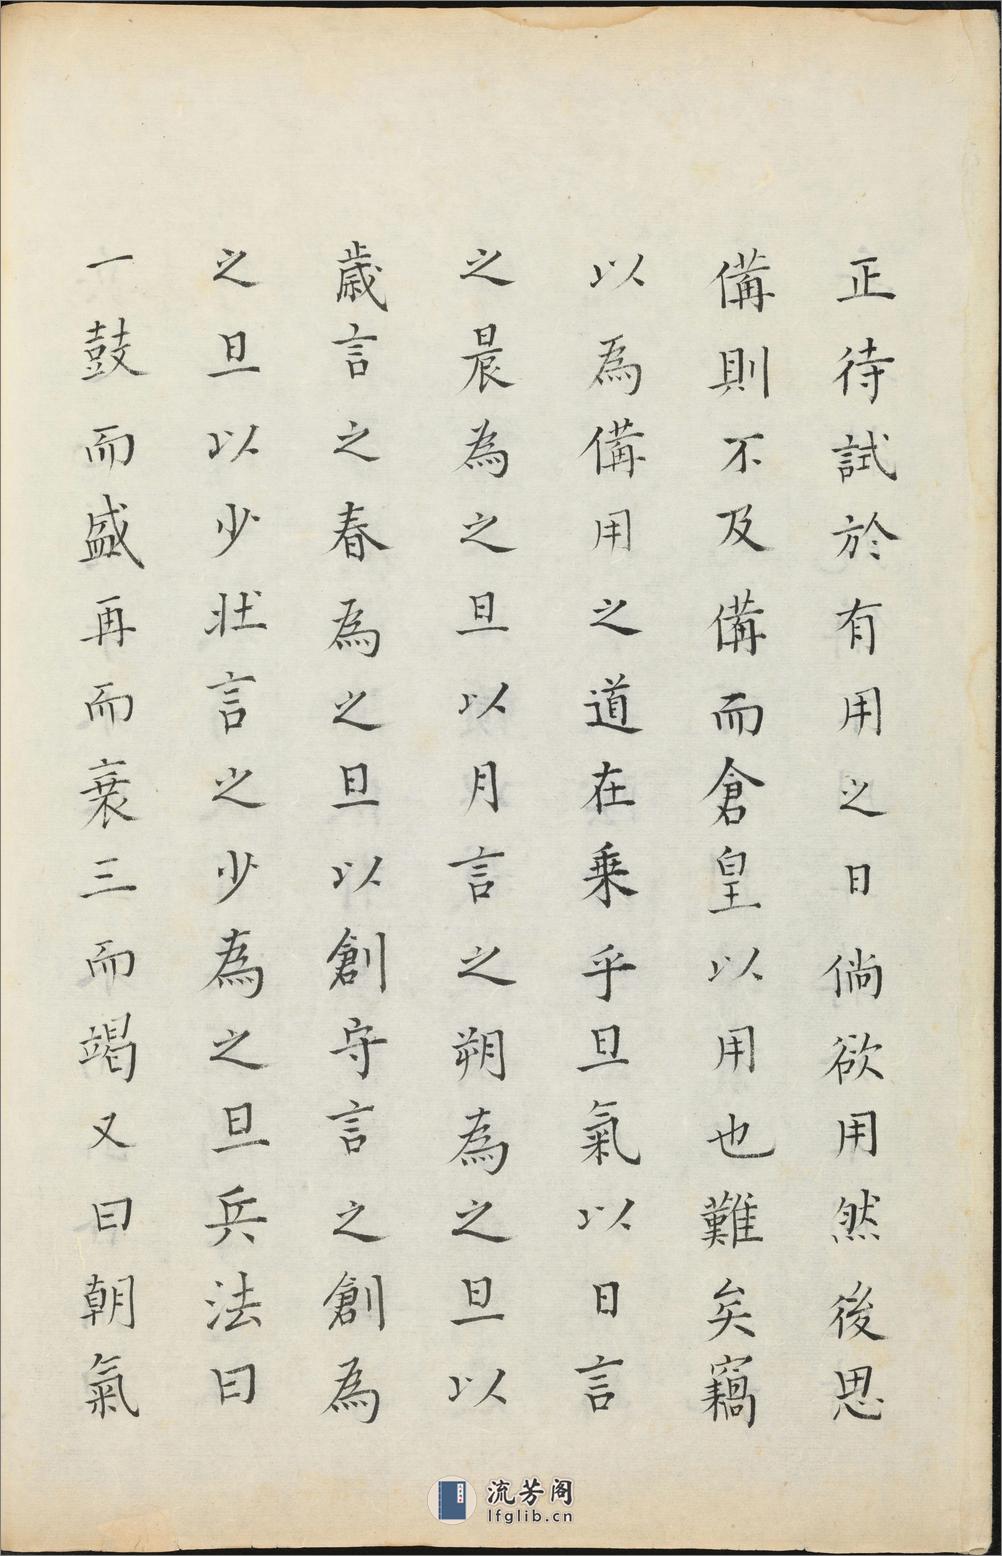 正待試於有用之日倘欲用然後思
備則不及備而倉皇以用也難矣竊
以為備用之道在乗乎旦氣以日言
之晨為之旦以月言之朔為之旦以
歳言之春為之旦以創守言之創為
之旦以少壯言之少為之旦兵法曰
一鼓而盛再而衰三而竭又曰朝氣
流芳阁
lfglib.cn